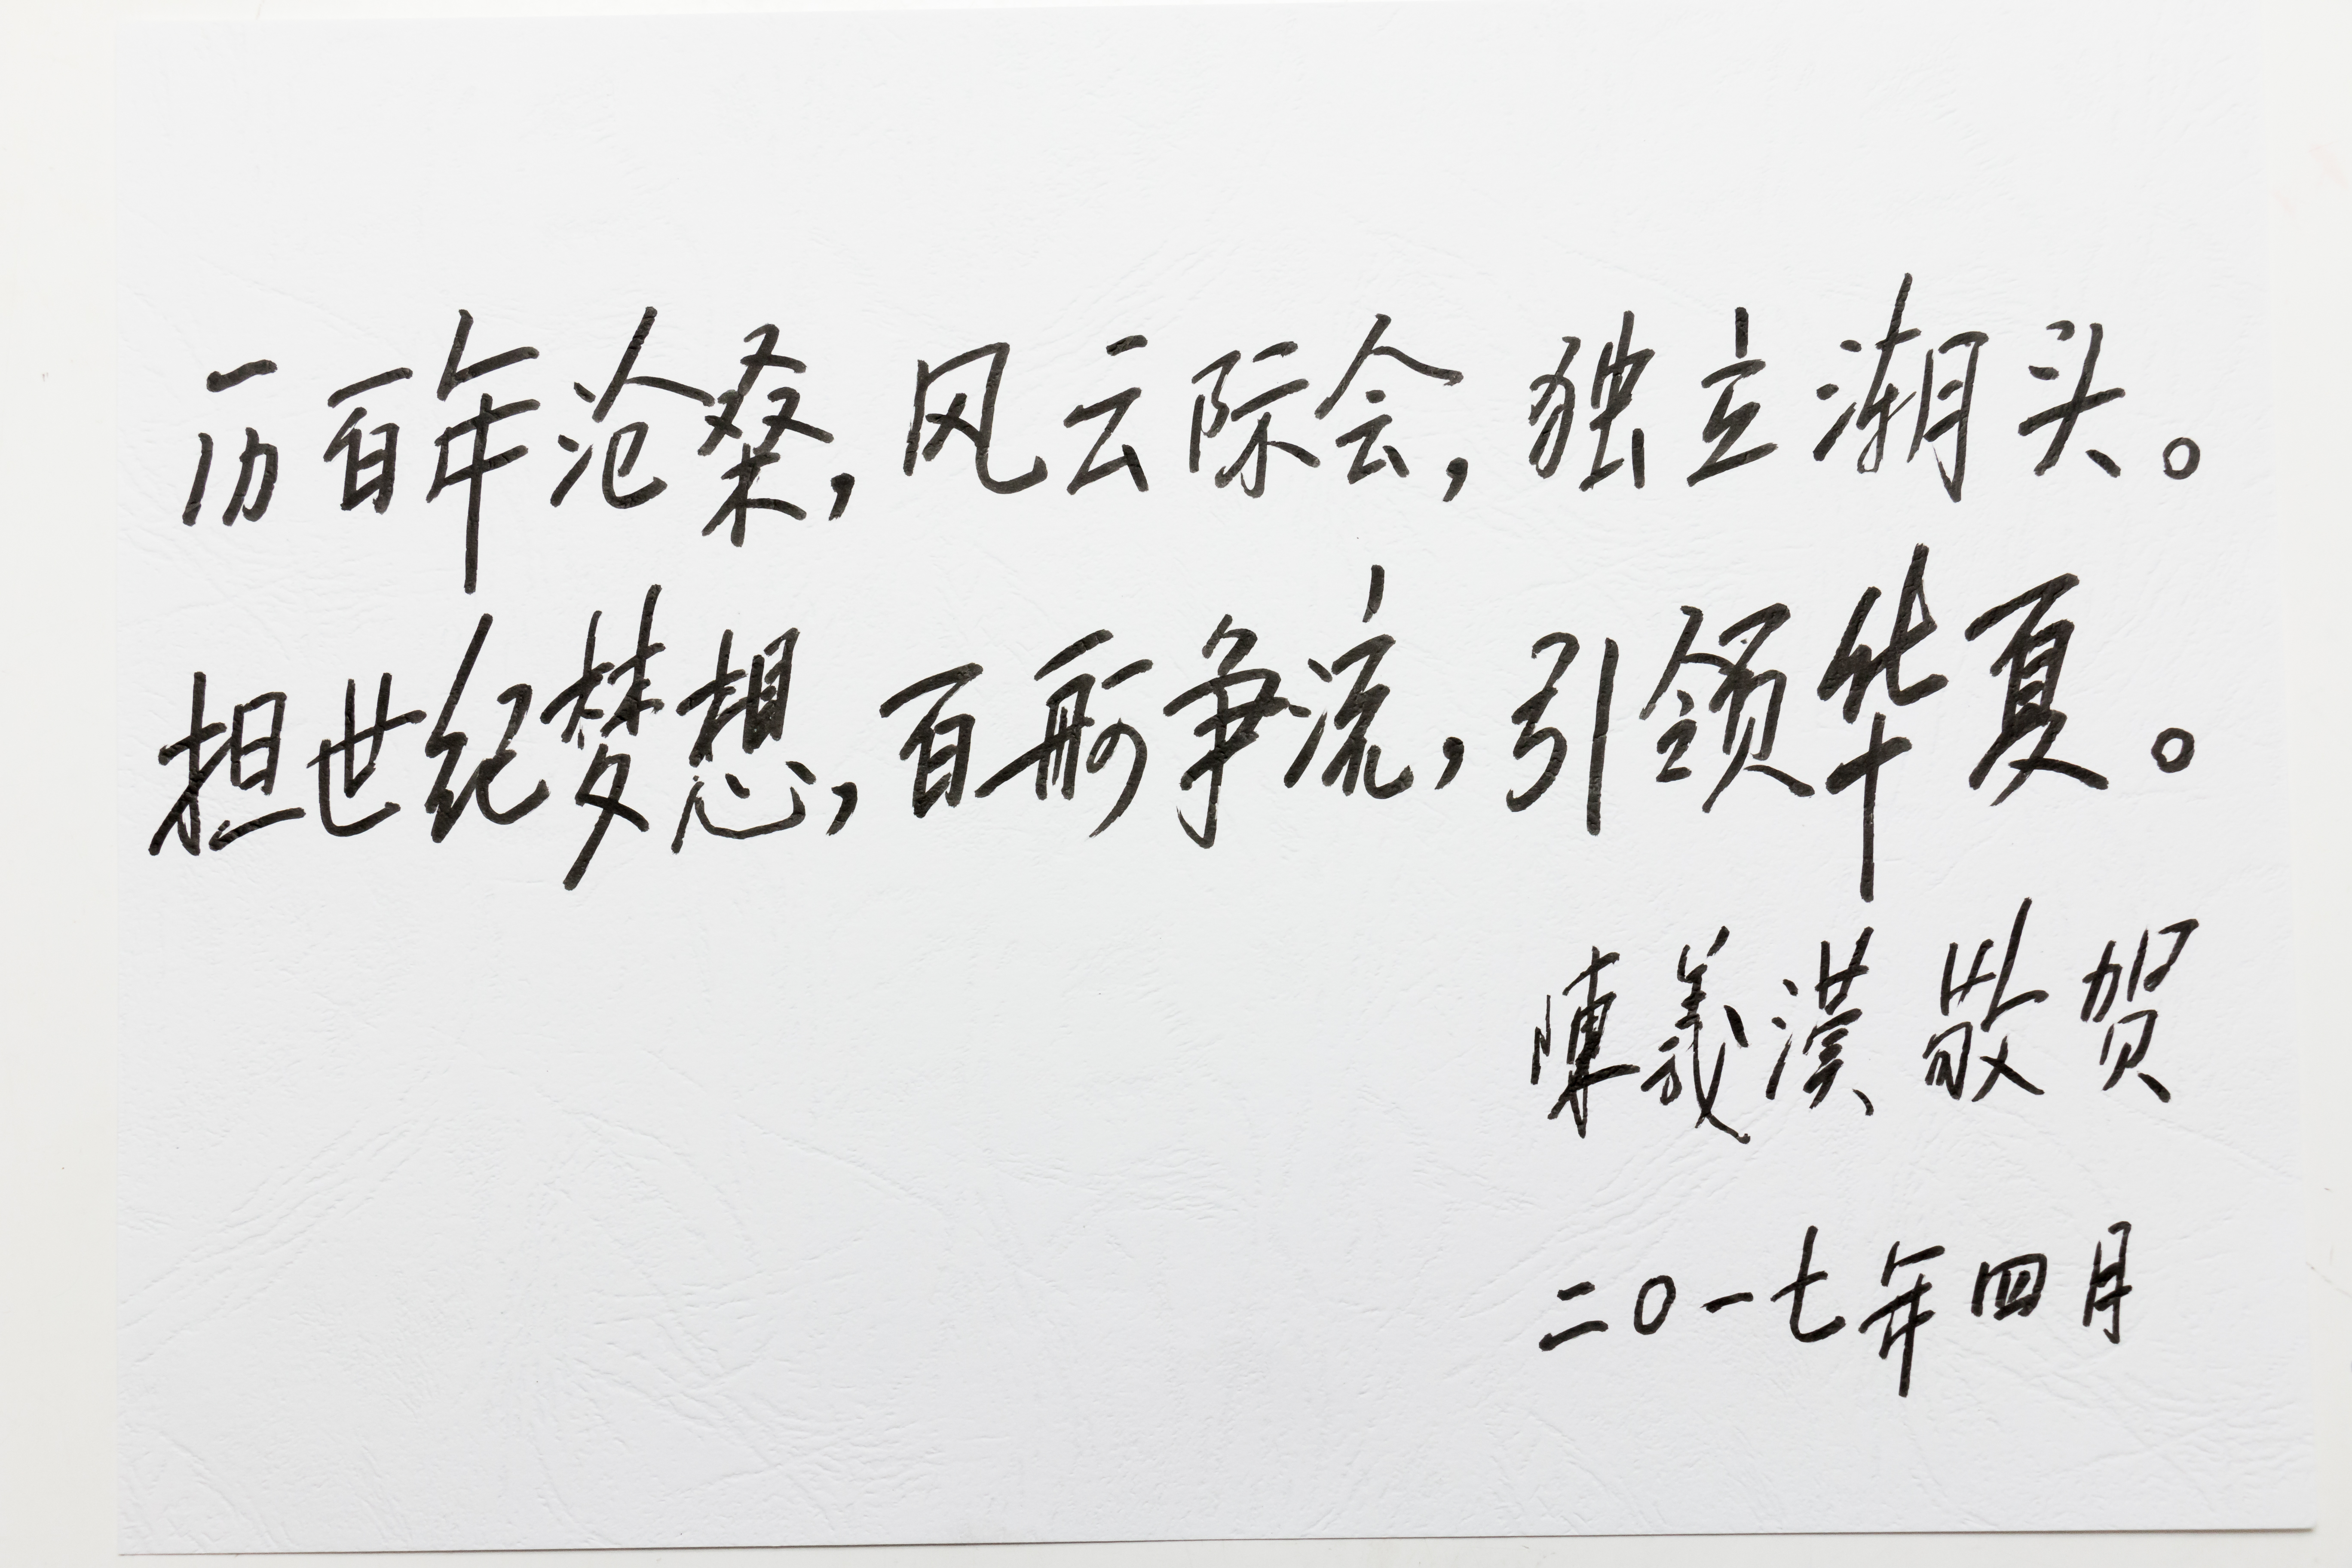 历百年沧桑,风云际会,独立潮头。
担世纪梦想,百舸争流,引领华夏。
陳義漢 敬贺
二〇一七年四月